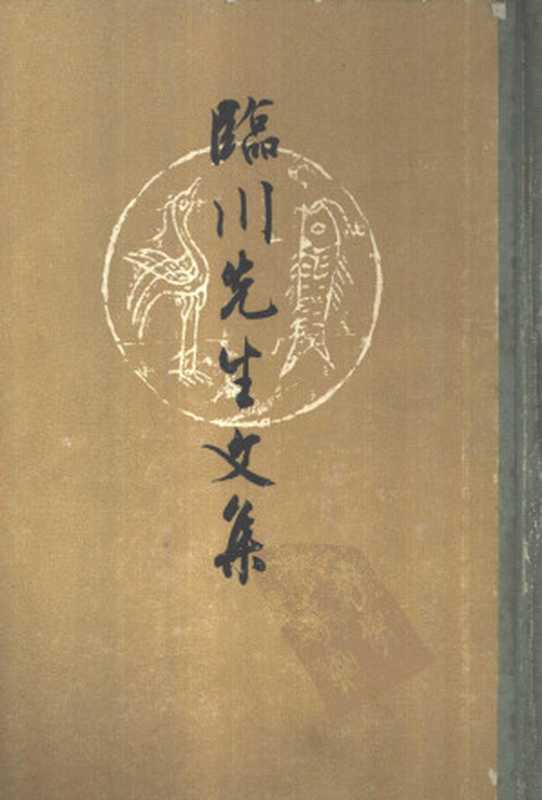 臨川先生文集